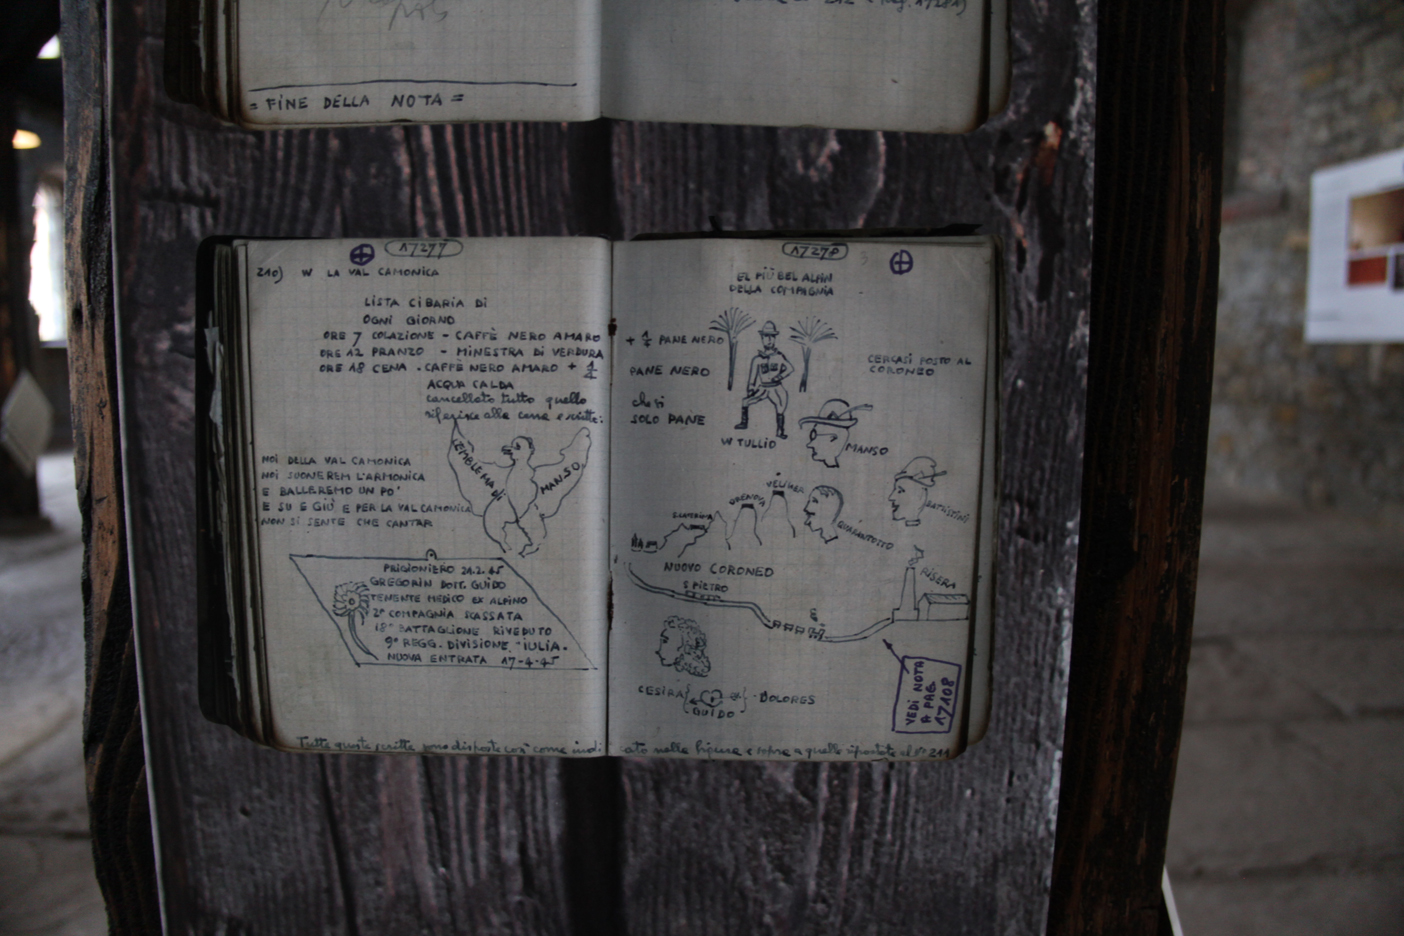 = FINE DELLA NOTA =
17277
210) W LA VAL CAMONICA
LISTA CIBARIA DI
OGNI GIORNO
ORE 7 COLAZIONE - CAFFÈ NERO AMARO
ORE 12 PRANZO - MINESTRA DI VERDURA
ORE 18 CENA - CAFFÈ NERO AMARO + 1/4
ACQUA CALDA
cancellato tutto quello
riferisce alla cena e scritte:
L'EMBLEMA di MANSO
NOI DELLA VAL CAMONICA
NOI SUONEREM L'ARMONICA
E BALLEREMO UN PO'
E SU E GIÙ E PER LA VAL CAMONICA
NON SI SENTE CHE CANTAR
PRIGIONIERO 21.2.45
GREGORIN DOTT. GUIDO
TENENTE MEDICO EX ALPINO
2ª COMPAGNIA SCASSATA
18° BATTAGLIONE RIVEDUTO
9° REGG. DIVISIONE "IULIA"
NUOVA ENTRATA 17-4-45
17278
EL PIÙ BEL ALPIN
DELLA COMPAGNIA
+ 1/4 PANE NERO
PANE NERO
che si
SOLO PANE
CERCASI POSTO AL
CORONEO
W TULLIO
MANSO
BATTISTINI
QUARANTOTTO
NUOVO CORONEO
S PIETRO
RISERA
CESIRA
GUIDO
DOLORES
VEDI NOTA
A PAG.
17108
Tutte queste scritte sono disposte così come indicato nella figura e sopra a quelle riportate al n° 211